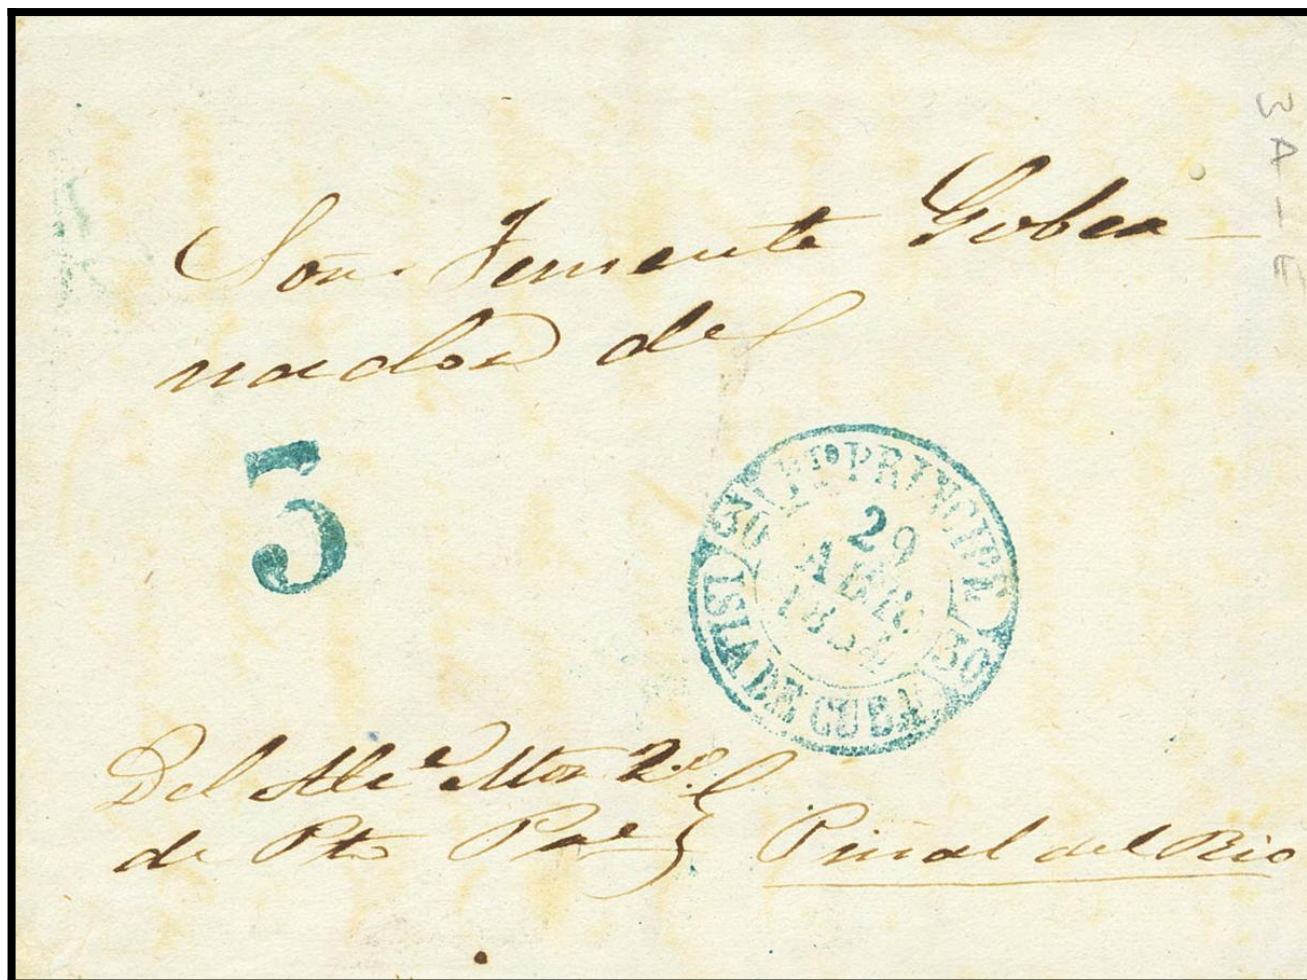 Sor. Teniente Gober
nador del
5
PTO PRINCIPE
30
29
ABR
30
ISLA DE CUBA
Del Alce. Mor. 2º
de Pto Pe
Pinal del Rio
3A-E